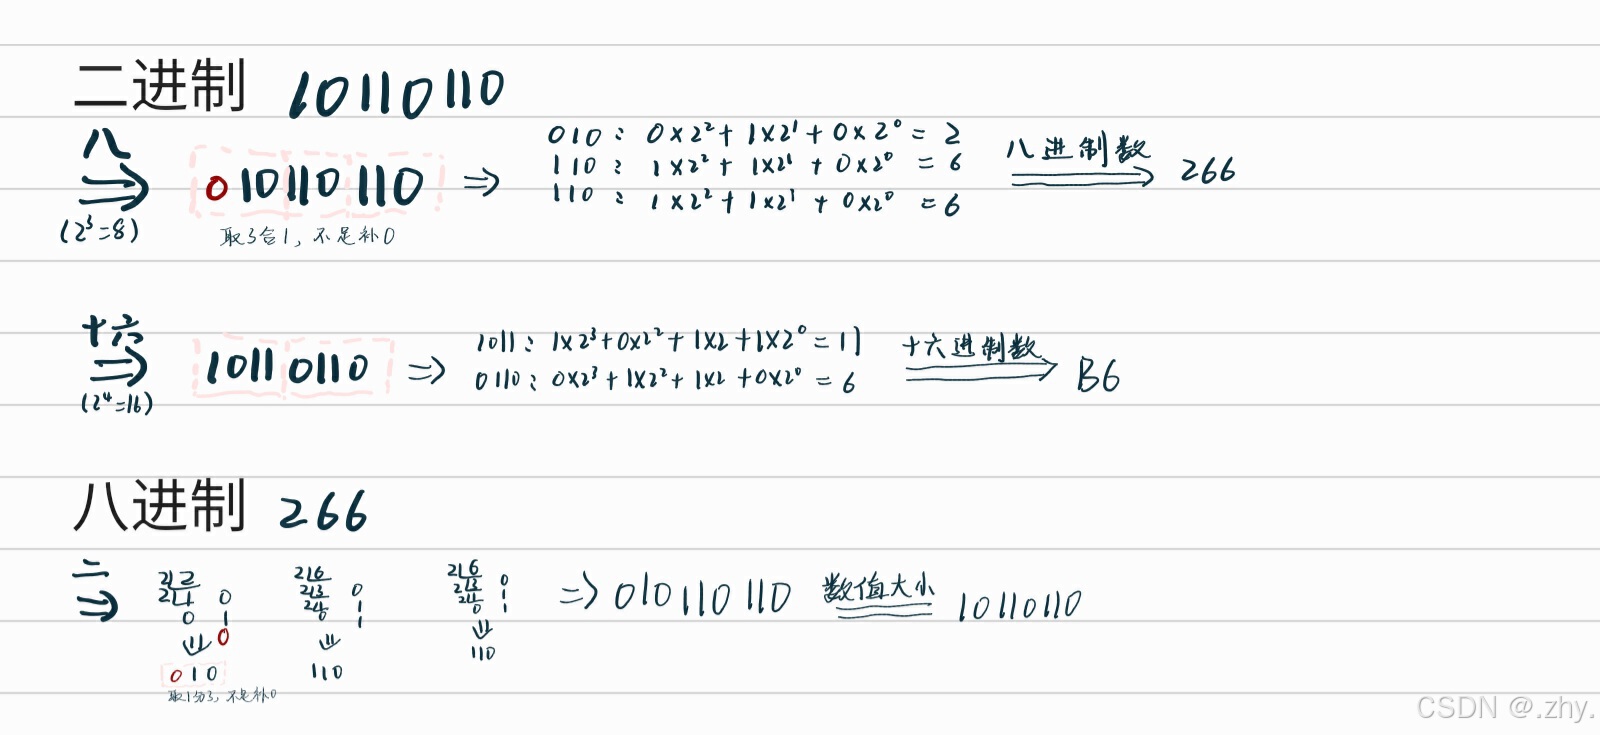 二进制 10110110
八
(2³=8)
010110110 ⇒
取3合1，不足补0
010： 0×2²+1×2¹+0×2⁰=2
110： 1×2²+1×2¹+0×2⁰=6
110： 1×2²+1×2¹+0×2⁰=6
八进制数
266
十六
(2⁴=16)
10110110 ⇒
1011： 1×2³+0×2²+1×2+1×2⁰=11
0110： 0×2³+1×2²+1×2+0×2⁰=6
十六进制数
B6
八进制 266
二
⇒
2 2 0
2 1 1
0 0
010
取1分3，不足补0
2 6 0
2 3 1
2 1
0
110
2 6 0
2 3 1
2 1
0
110
⇒ 010110110
数值大小
10110110
CSDN @.zhy.